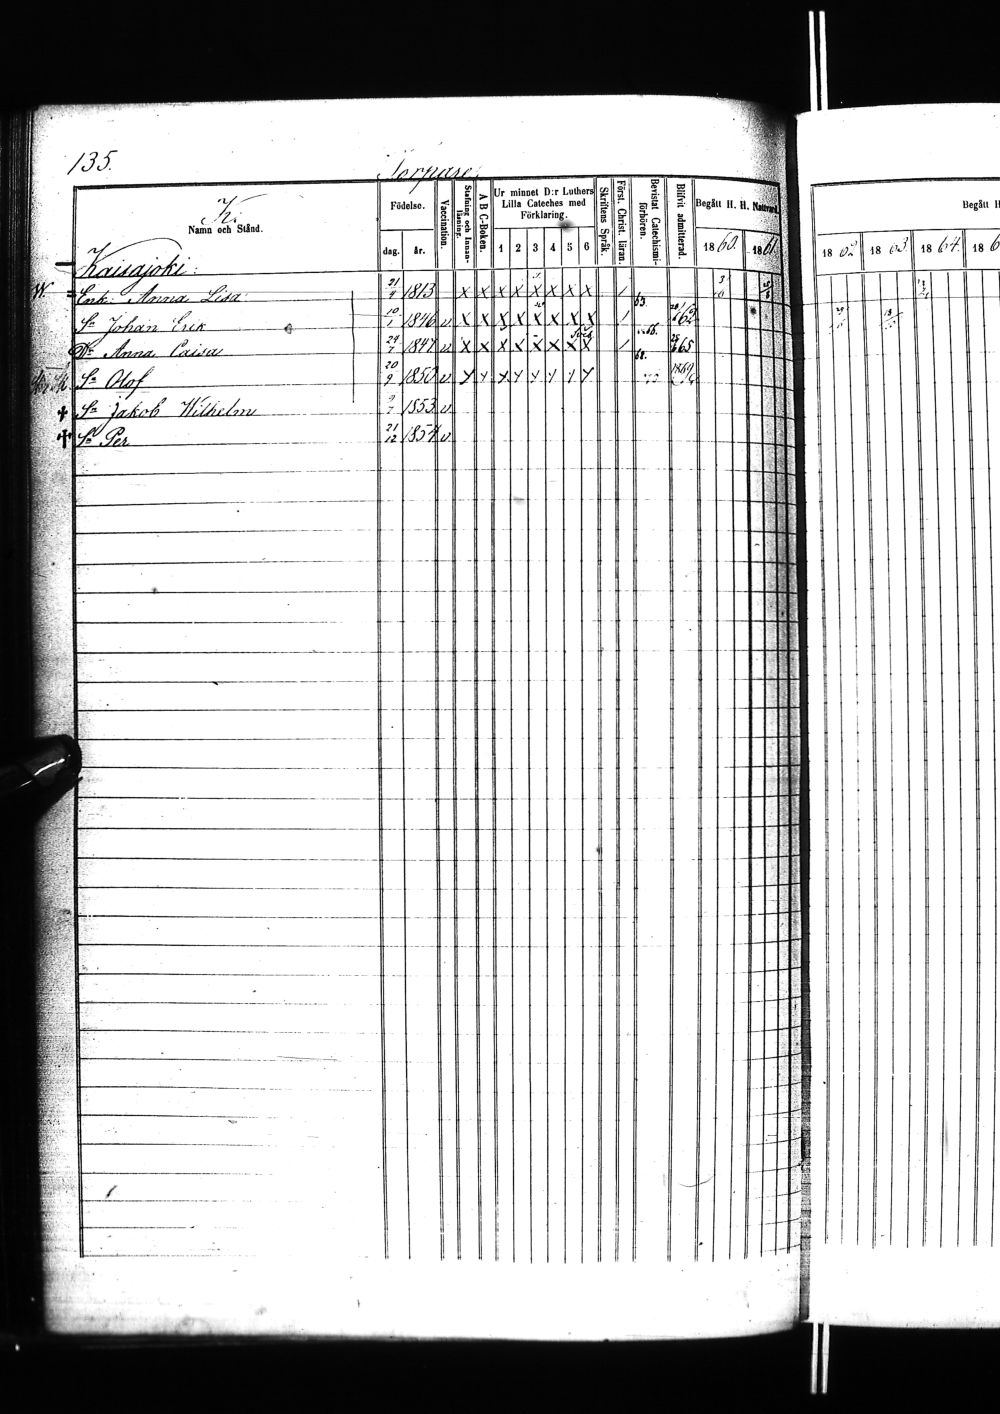 135.
Torpare
K.
Namn och Stånd.
Födelse.
dag. år.
Vaccination.
Stafning och Innanläsning.
A B C-Boken.
Ur minnet D:r Luthers Lilla Cateches med Förklaring.
1 2 3 4 5 6
Skriftens Språk.
Först. Christ. läran.
Bevistat Catechismiförhören.
Blifvit admitterad.
Begått H. H. Nattvard.
1860. 1861
Begått H
1862 1863 1864 186
Kaisajoki.
Enk: Anna Lisa 21/9 1813 X X X X X X X X 1 3/6
Sn Johan Erik 10/1 1846 v X X X X X X X X 1 63. 62
Dr Anna Caisa 29/7 1847 v X X X X X X X X 1 66. 65
Sn Olof 20/9 1850 v 68. 1869
+ Sn Jakob Wilhelm 1853 v
+ Sn Per 21/12 1854 v